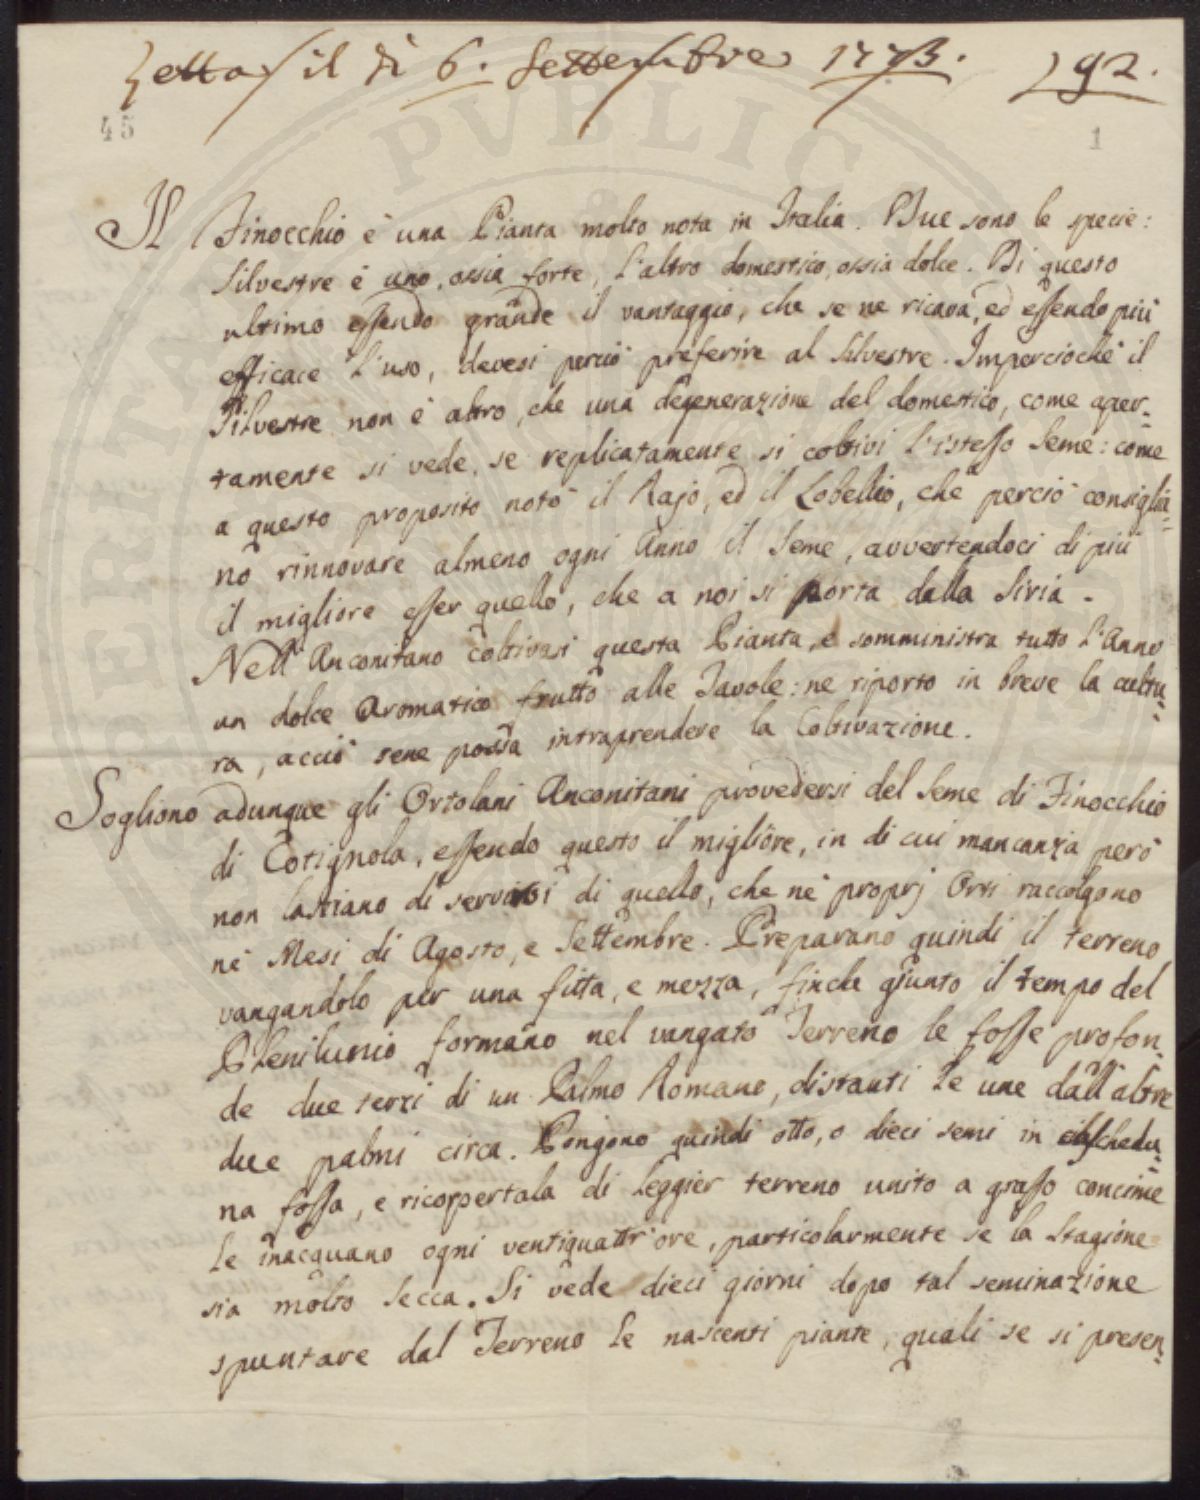 Letta il dì 6. Settembre 1773. 92.
45
1
Il Finocchio è una Pianta molto nota in Italia. Due sono le specie:
Silvestre è uno, ossia forte, l'altro domestico, ossia dolce. Di questo
ultimo essendo grande il vantaggio, che se ne ricava, ed essendo più
efficace l'uso, devesi perciò preferire al Silvestre. Imperciochè il
Silvestre non è altro, che una degenerazione del domestico, come aper=
tamente si vede, se replicatamente si coltivi l'istesso Seme: come
a questo proposito notò il Rajo, ed il Lobellio, che perciò consiglia=
no rinnovare almeno ogni Anno il Seme, avvertendoci di più
il migliore esser quello, che a noi si porta dalla Siria.
Nell'Anconitano coltivasi questa Pianta, e somministra tutto l'Anno
un dolce Aromatico frutto alle Tavole: ne riporto in breve la cultu=
ra, acciò sene possa intraprendere la Coltivazione.
Sogliono adunque gli Ortolani Anconitani provedersi del Seme di Finocchio
di Cotignola, essendo questo il migliore, in di cui mancanza però
non lasciano di servirsi di quello, che nè proprj Orti raccolgono
nè Mesi di Agosto, e Settembre. Preparano quindi il terreno
vangandolo per una fitta, e mezza, finche giunto il tempo del
Plenilunio formano nel vangato Terreno le fosse profon=
de due terzi di un Palmo Romano, distanti le une dall'altre
due palmi circa. Pongono quindi otto, o dieci semi in ciaschedu=
na fossa, e ricopertala di leggier terreno unito a grasso concime
le inacquano ogni ventiquattr'ore, particolarmente se la Stagione
sia molto secca. Si vede dieci giorni dopo tal seminazione
spuntare dal Terreno le nascenti piante, quali se si presen=